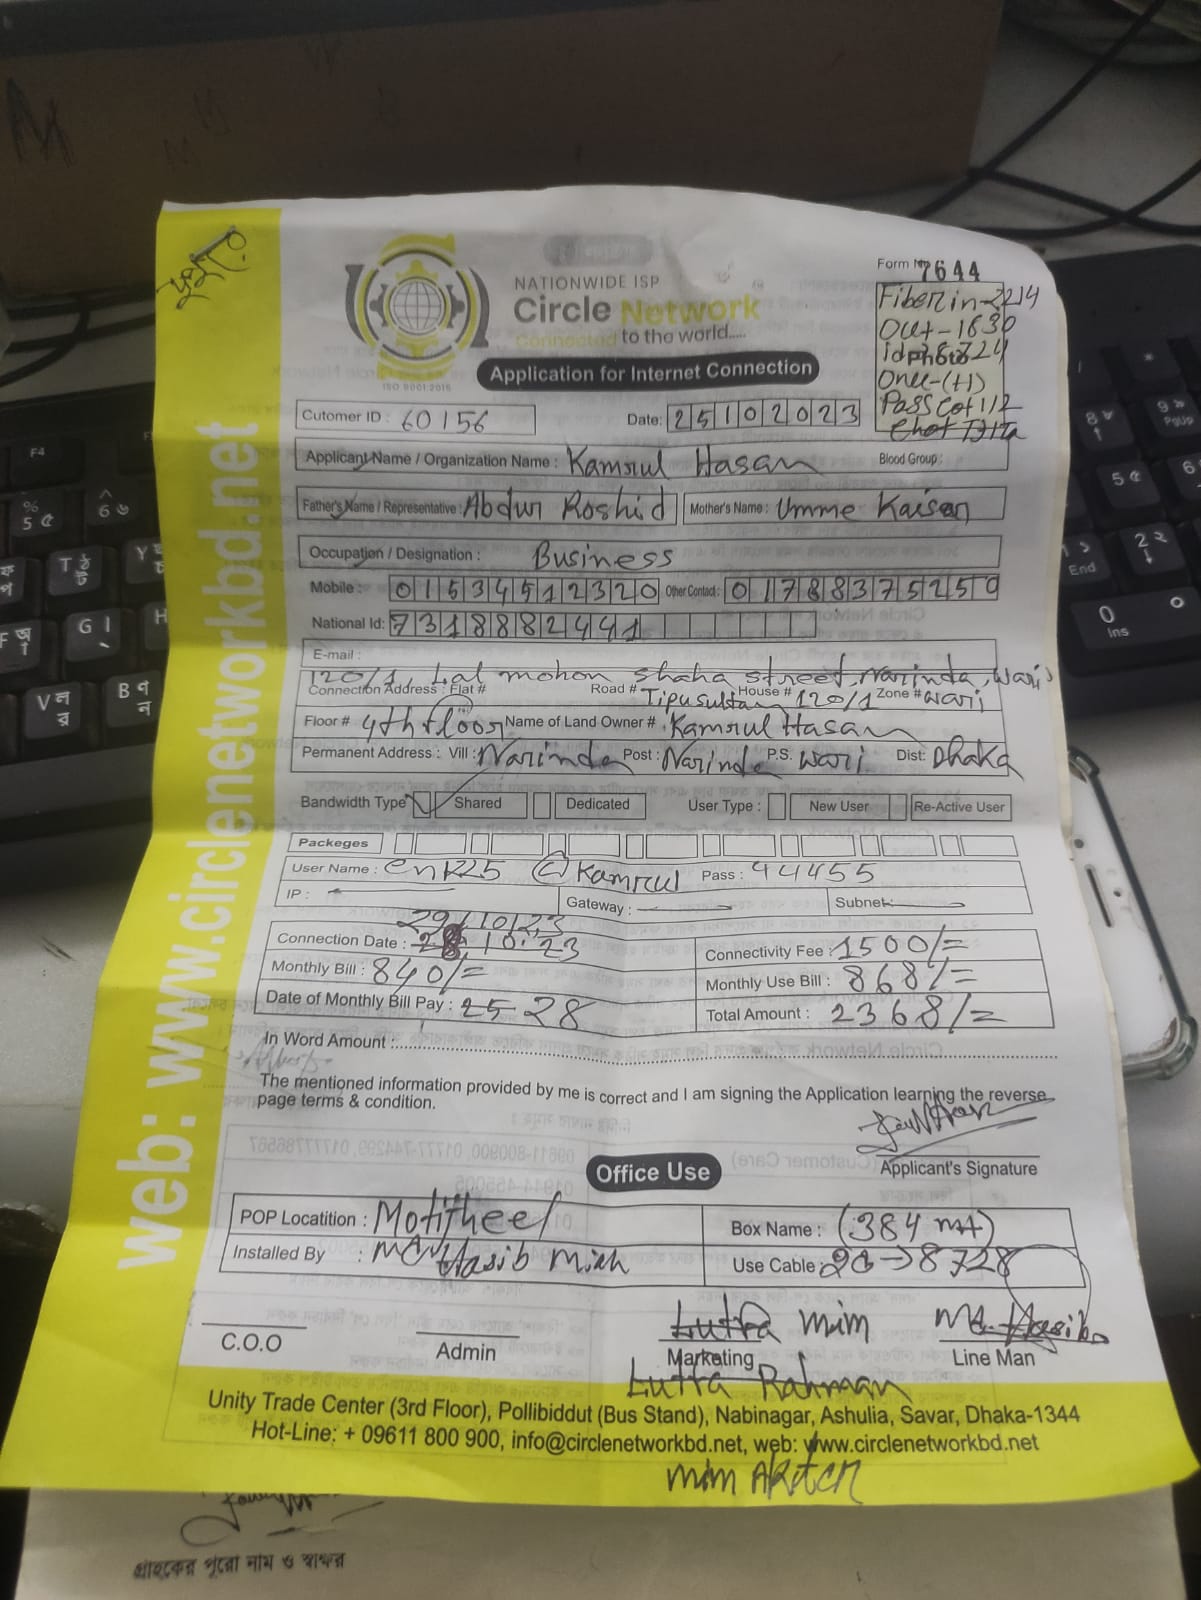 NATIONWIDE ISP
Circle Network
Connected to the world.....
ISO 9001:2015
Form No 7644
Fiber in-2214
Out-1630
Onu-(H)
Application for Internet Connection
Cutomer ID : 60156
Date: 25102023
Applicant Name / Organization Name : Kamrul Hasan
Blood Group :
Father's Name / Representative : Abdur Roshid
Mother's Name : Umme Kaisar
Occupation / Designation : Business
Mobile : 01534512320
Other Contact : 01788375259
National Id: 7318882441
E-mail :
120/1, Lal mohon shaha street, Narinda, Wari
Connection Address : Flat # Road # Tipu sultan House # 120/1 Zone # wari
Floor # 4th floor Name of Land Owner # Kamrul Hasan
Permanent Address : Vill : Narinda Post : Narinda P.S. wari Dist: Dhaka
Bandwidth Type Shared Dedicated User Type : New User Re-Active User
Packeges
User Name : cnk25 @Kamrul Pass : 44455
IP : Gateway : Subnet:
29/10/23
Connection Date : 28.10.23
Connectivity Fee : 1500/=
Monthly Bill : 840/=
Monthly Use Bill : 868/=
Date of Monthly Bill Pay : 25 28
Total Amount : 2368/=
In Word Amount :
The mentioned information provided by me is correct and I am signing the Application learning the reverse
page terms & condition.
Applicant's Signature
Office Use
POP Locatition : Motijheel
Box Name : (384 mt)
Installed By : Hasib Miah
Use Cable : 28→8728
Lutfa mim
Md. Hasib
C.O.O
Admin
Marketing
Line Man
Lutfa Rahman
Unity Trade Center (3rd Floor), Pollibiddut (Bus Stand), Nabinagar, Ashulia, Savar, Dhaka-1344
Hot-Line: + 09611 800 900, info@circlenetworkbd.net, web: www.circlenetworkbd.net
mim Akter
web: www.circlenetworkbd.net
গ্রাহকের পুরো নাম ও স্বাক্ষর